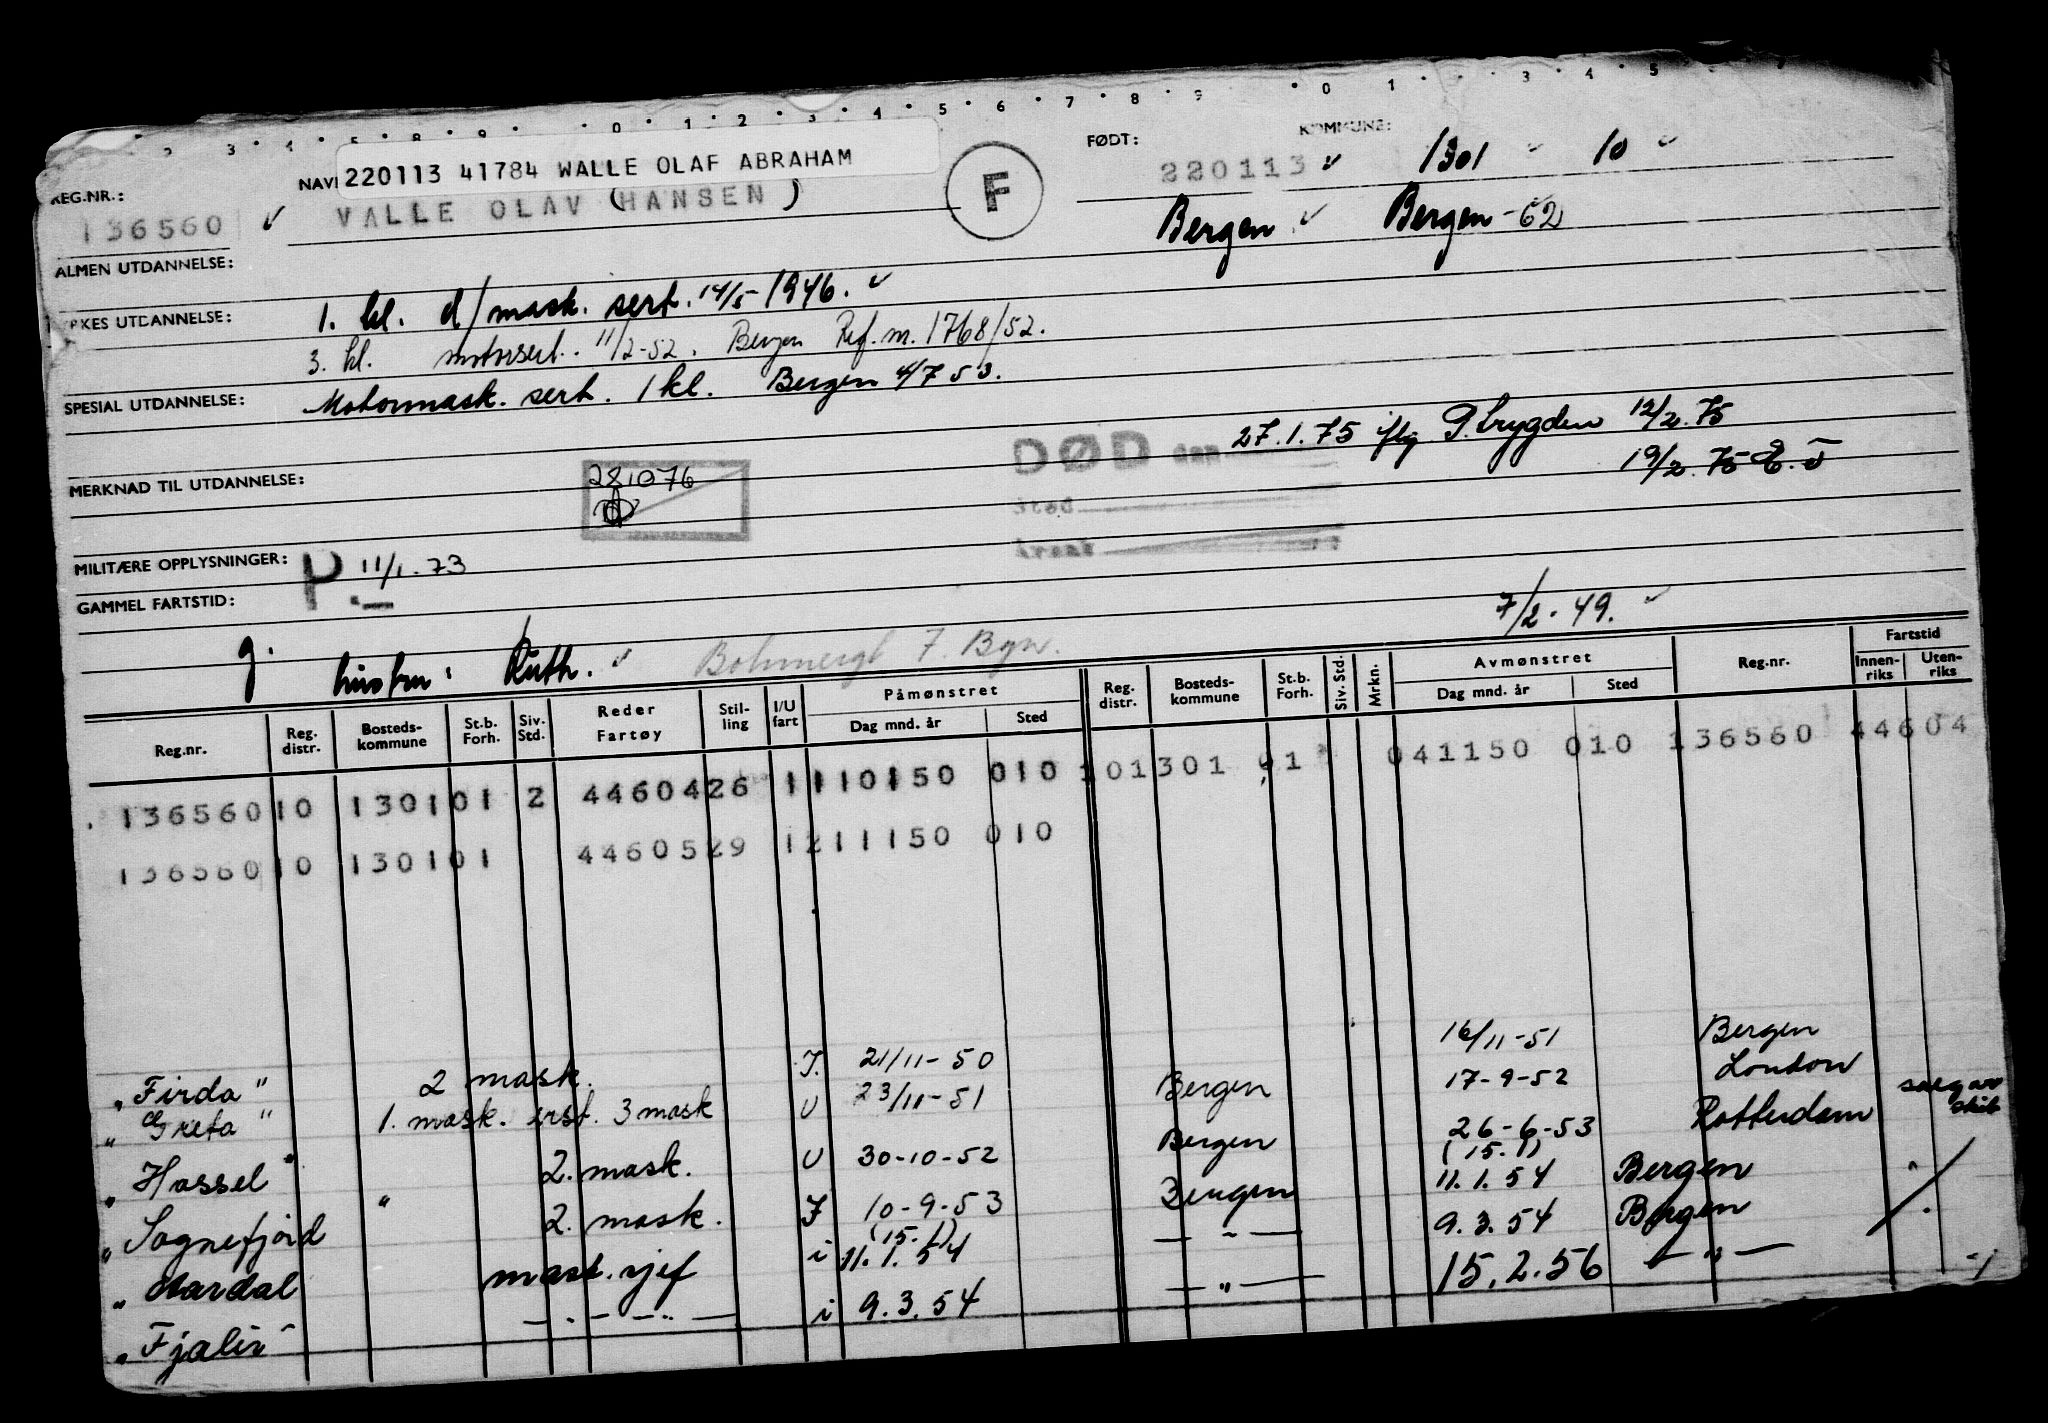 REG.NR.: NAVN FØDT: KOMMUNE:
220113 41784 WALLE OLAF ABRAHAM
F
220113 1301 10
136560 VALLE OLAV (HANSEN)
Bergen Bergen -62
ALMEN UTDANNELSE:
YRKES UTDANNELSE: 1. kl. d/mask. sert. 14/5-1946.
3. kl. motorsert. 11/2-52. Bergen Ref. m. 1768/52.
SPESIAL UTDANNELSE: Motormask. sert. 1 kl. Bergen 4/7 53.
DØD den 27.1.75 iflg. P.trygden 12/2.75
19/2.75
MERKNAD TIL UTDANNELSE: 281076
Sted
Årsak
MILITÆRE OPPLYSNINGER: P. 11/1.73
GAMMEL FARTSTID:
7/2-49.
g. hustru: Ruth.
Reg.nr. Reg. distr. Bosteds-kommune St.b. Forh. Siv. Std. Reder Fartøy Stil-ling I/U fart Påmønstret Dag mnd. år Sted Reg. distr. Bosteds-kommune St.b. Forh. Siv. Std. Mrkn. Avmønstret Dag mnd. år Sted Reg.nr. Fartstid Innen-riks Uten-riks
136560 10 1301 01 2 44604 26 1 110150 010 101301 01 041150 010 136560 44604
136560 10 1301 01 44605 29 1 211150 010
"Firda" 2 mask. I. 21/11-50 16/11-51 Bergen
"Greta" 1. mask. erst. 3 mask U 23/11-51 Bergen 17-9-52 London
"Hassel" 2. mask. U 30-10-52 Bergen 26-6-53 Rotterdam salg av skib
"Sognefjord" 2. mask. I 10-9-53 Bergen (15.1) 11.1.54 Bergen
"Aardal mask. sjef i (15.1) 11.1.54 — " — 9.3.54 Bergen
"Fjalir" — " — i 9.3.54 — " — 15.2.56 — " —